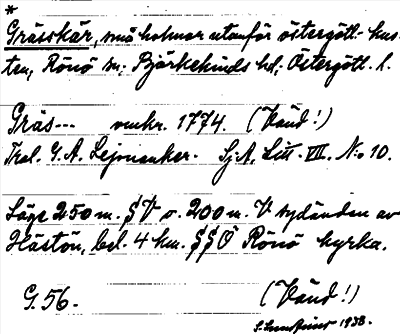 *
Grässkär, små holmar utanför östergötl. kus-
ten, Rönö sn; Björkekinds hd; Östergötl. l.
Gräs--- omkr. 1774. (Vänd!)
Tral. G. A. Lejonanker. Sj. A. Litt. VII. No 10.
Läge 250 m. S V o. 200 m. V sydänden av
Hästön, bel. 4 km. SSO Rönö kyrka.
G. 56. (Vänd!)
1938.